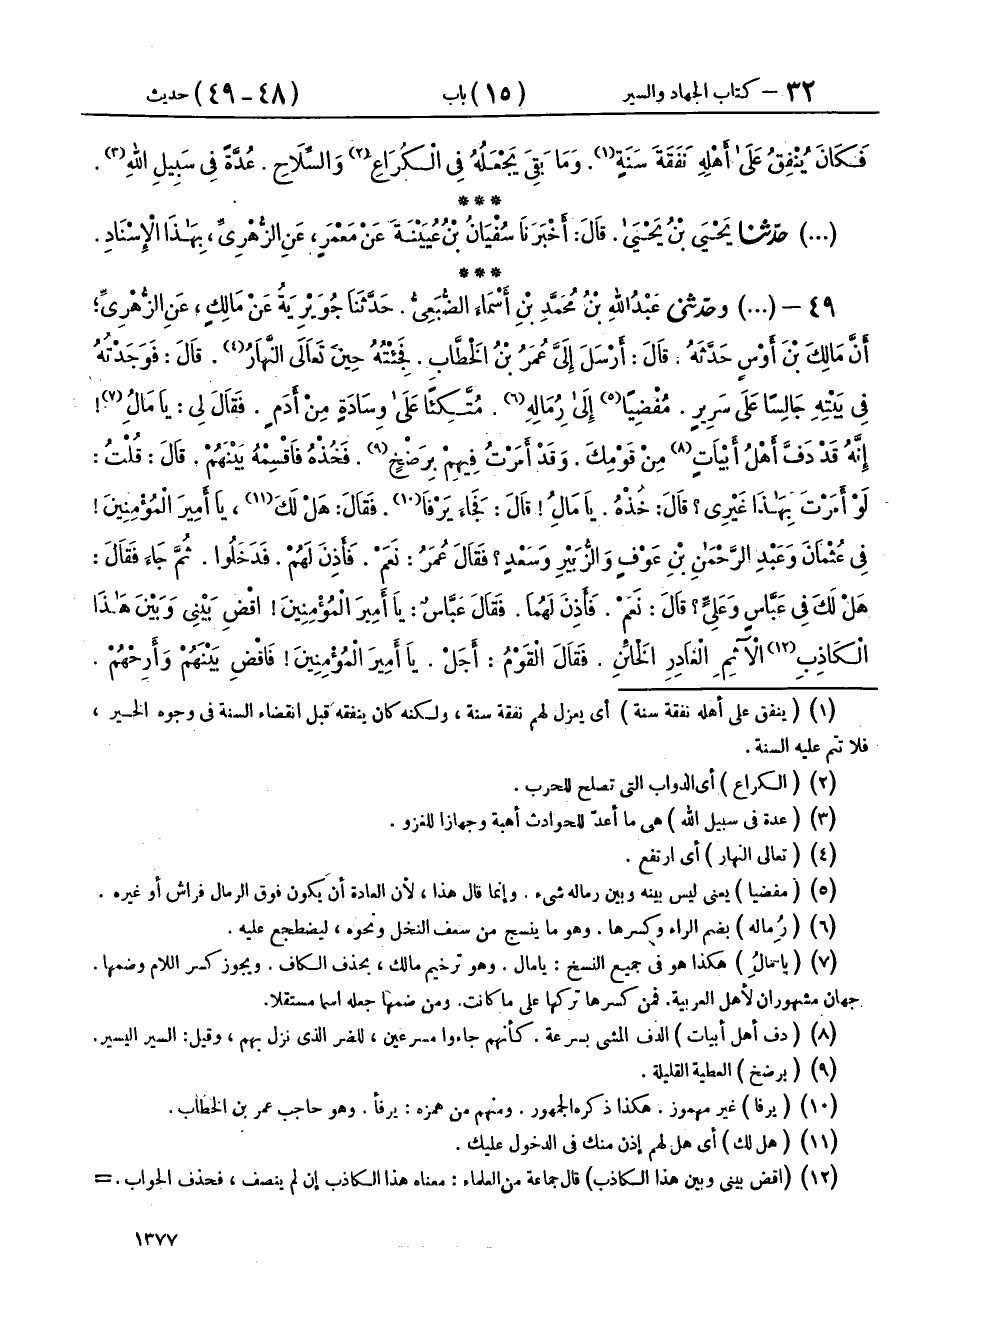 ٣٢ – كتاب الجهاد والسير (١٥) باب (٤٨-٤٩) حديث
فَكَانَ يُنْفِقُ عَلَىٰ أَهْلِهِ نَفَقَةَ سَنَةٍ(١). وَمَا بَقِيَ يَجْعَلُهُ فِي الْكُرَاعِ(٢) وَالسِّلَاحِ. عُدَّةً فِي سَبِيلِ اللهِ(٣).
***
(...) حدّثنا يَحْيَىٰ بْنُ يَحْيَىٰ. قَالَ: أَخْبَرَنَا سُفْيَانُ بْنُ عُيَيْنَةَ عَنْ مَعْمَرٍ، عَنِ الزُّهْرِيِّ، بِهَٰذَا الْإِسْنَادِ.
***
٤٩ – (...) وحدّثني عَبْدُ اللهِ بْنُ مُحَمَّدِ بْنِ أَسْمَاءَ الضُّبَعِيُّ. حَدَّثَنَا جُوَيْرِيَةُ عَنْ مَالِكٍ، عَنِ الزُّهْرِيِّ؛
أَنَّ مَالِكَ بْنَ أَوْسٍ حَدَّثَهُ. قَالَ: أَرْسَلَ إِلَيَّ عُمَرُ بْنُ الْخَطَّابِ. فَجِئْتُهُ حِينَ تَعَالَى النَّهَارُ(٤). قَالَ: فَوَجَدْتُهُ
فِي بَيْتِهِ جَالِسًا عَلَىٰ سَرِيرٍ. مُفْضِيًا(٥) إِلَىٰ رُمَالِهِ(٦). مُتَّكِئًا عَلَىٰ وِسَادَةٍ مِنْ أَدَمٍ. فَقَالَ لِي: يَا مَالُ(٧)!
إِنَّهُ قَدْ دَفَّ أَهْلُ أَبْيَاتٍ(٨) مِنْ قَوْمِكَ. وَقَدْ أَمَرْتُ فِيهِمْ بِرَضْخٍ(٩). فَخُذْهُ فَاقْسِمْهُ بَيْنَهُمْ. قَالَ: قُلْتُ:
لَوْ أَمَرْتَ بِهَٰذَا غَيْرِي؟ قَالَ: خُذْهُ. يَا مَالُ! قَالَ: فَجَاءَ يَرْفَا(١٠). فَقَالَ: هَلْ لَكَ(١١)، يَا أَمِيرَ الْمُؤْمِنِينَ!
فِي عُثْمَانَ وَعَبْدِ الرَّحْمَٰنِ بْنِ عَوْفٍ وَالزُّبَيْرِ وَسَعْدٍ؟ فَقَالَ عُمَرُ: نَعَمْ. فَأَذِنَ لَهُمْ. فَدَخَلُوا. ثُمَّ جَاءَ فَقَالَ:
هَلْ لَكَ فِي عَبَّاسٍ وَعَلِيٍّ؟ قَالَ: نَعَمْ. فَأَذِنَ لَهُمَا. فَقَالَ عَبَّاسٌ: يَا أَمِيرَ الْمُؤْمِنِينَ! اقْضِ بَيْنِي وَبَيْنَ هَٰذَا
الْكَاذِبِ(١٢) الْآثِمِ الْغَادِرِ الْخَائِنِ. فَقَالَ الْقَوْمُ: أَجَلْ. يَا أَمِيرَ الْمُؤْمِنِينَ! فَاقْضِ بَيْنَهُمْ وَأَرِحْهُمْ.
(١) (ينفق على أهله نفقة سنة) أى يعزل لهم نفقة سنة، ولكنه كان ينفقه قبل انقضاء السنة فى وجوه الخير،
فلا تتم عليه السنة.
(٢) (الكراع) أى الدواب التى تصلح للحرب.
(٣) (عدة فى سبيل الله) هى ما أعدّ للحوادث أهبة وجهازا للغزو.
(٤) (تعالى النهار) أى ارتفع.
(٥) (مفضيا) يعنى ليس بينه وبين رماله شىء. وإنما قال هذا، لأن العادة أن يكون فوق الرمال فراش أو غيره.
(٦) (رُِماله) بضم الراء وكسرها. وهو ما ينسج من سعف النخل ونحوه، ليضطجع عليه.
(٧) (يا مالُِ) هكذا هو فى جميع النسخ: يا مال. وهو ترخيم مالك، بحذف الكاف. ويجوز كسر اللام وضمها.
جهان مشهوران لأهل العربية. فمن كسرها تركها على ما كانت. ومن ضمها جعله اسما مستقلا.
(٨) (دف أهل أبيات) الدف المشى بسرعة. كأنهم جاءوا مسرعين، للضر الذى نزل بهم، وقيل: السير اليسير.
(٩) (برضخ) العطية القليلة.
(١٠) (يرفا) غير مهموز. هكذا ذكره الجمهور. ومنهم من همزه: يرفأ. وهو حاجب عمر بن الخطاب.
(١١) (هل لك) أى هل لهم إذن منك فى الدخول عليك.
(١٢) (اقض بينى وبين هذا الكاذب) قال جماعة من العلماء: معناه هذا الكاذب إن لم ينصف، فحذف الجواب. =
١٣٧٧